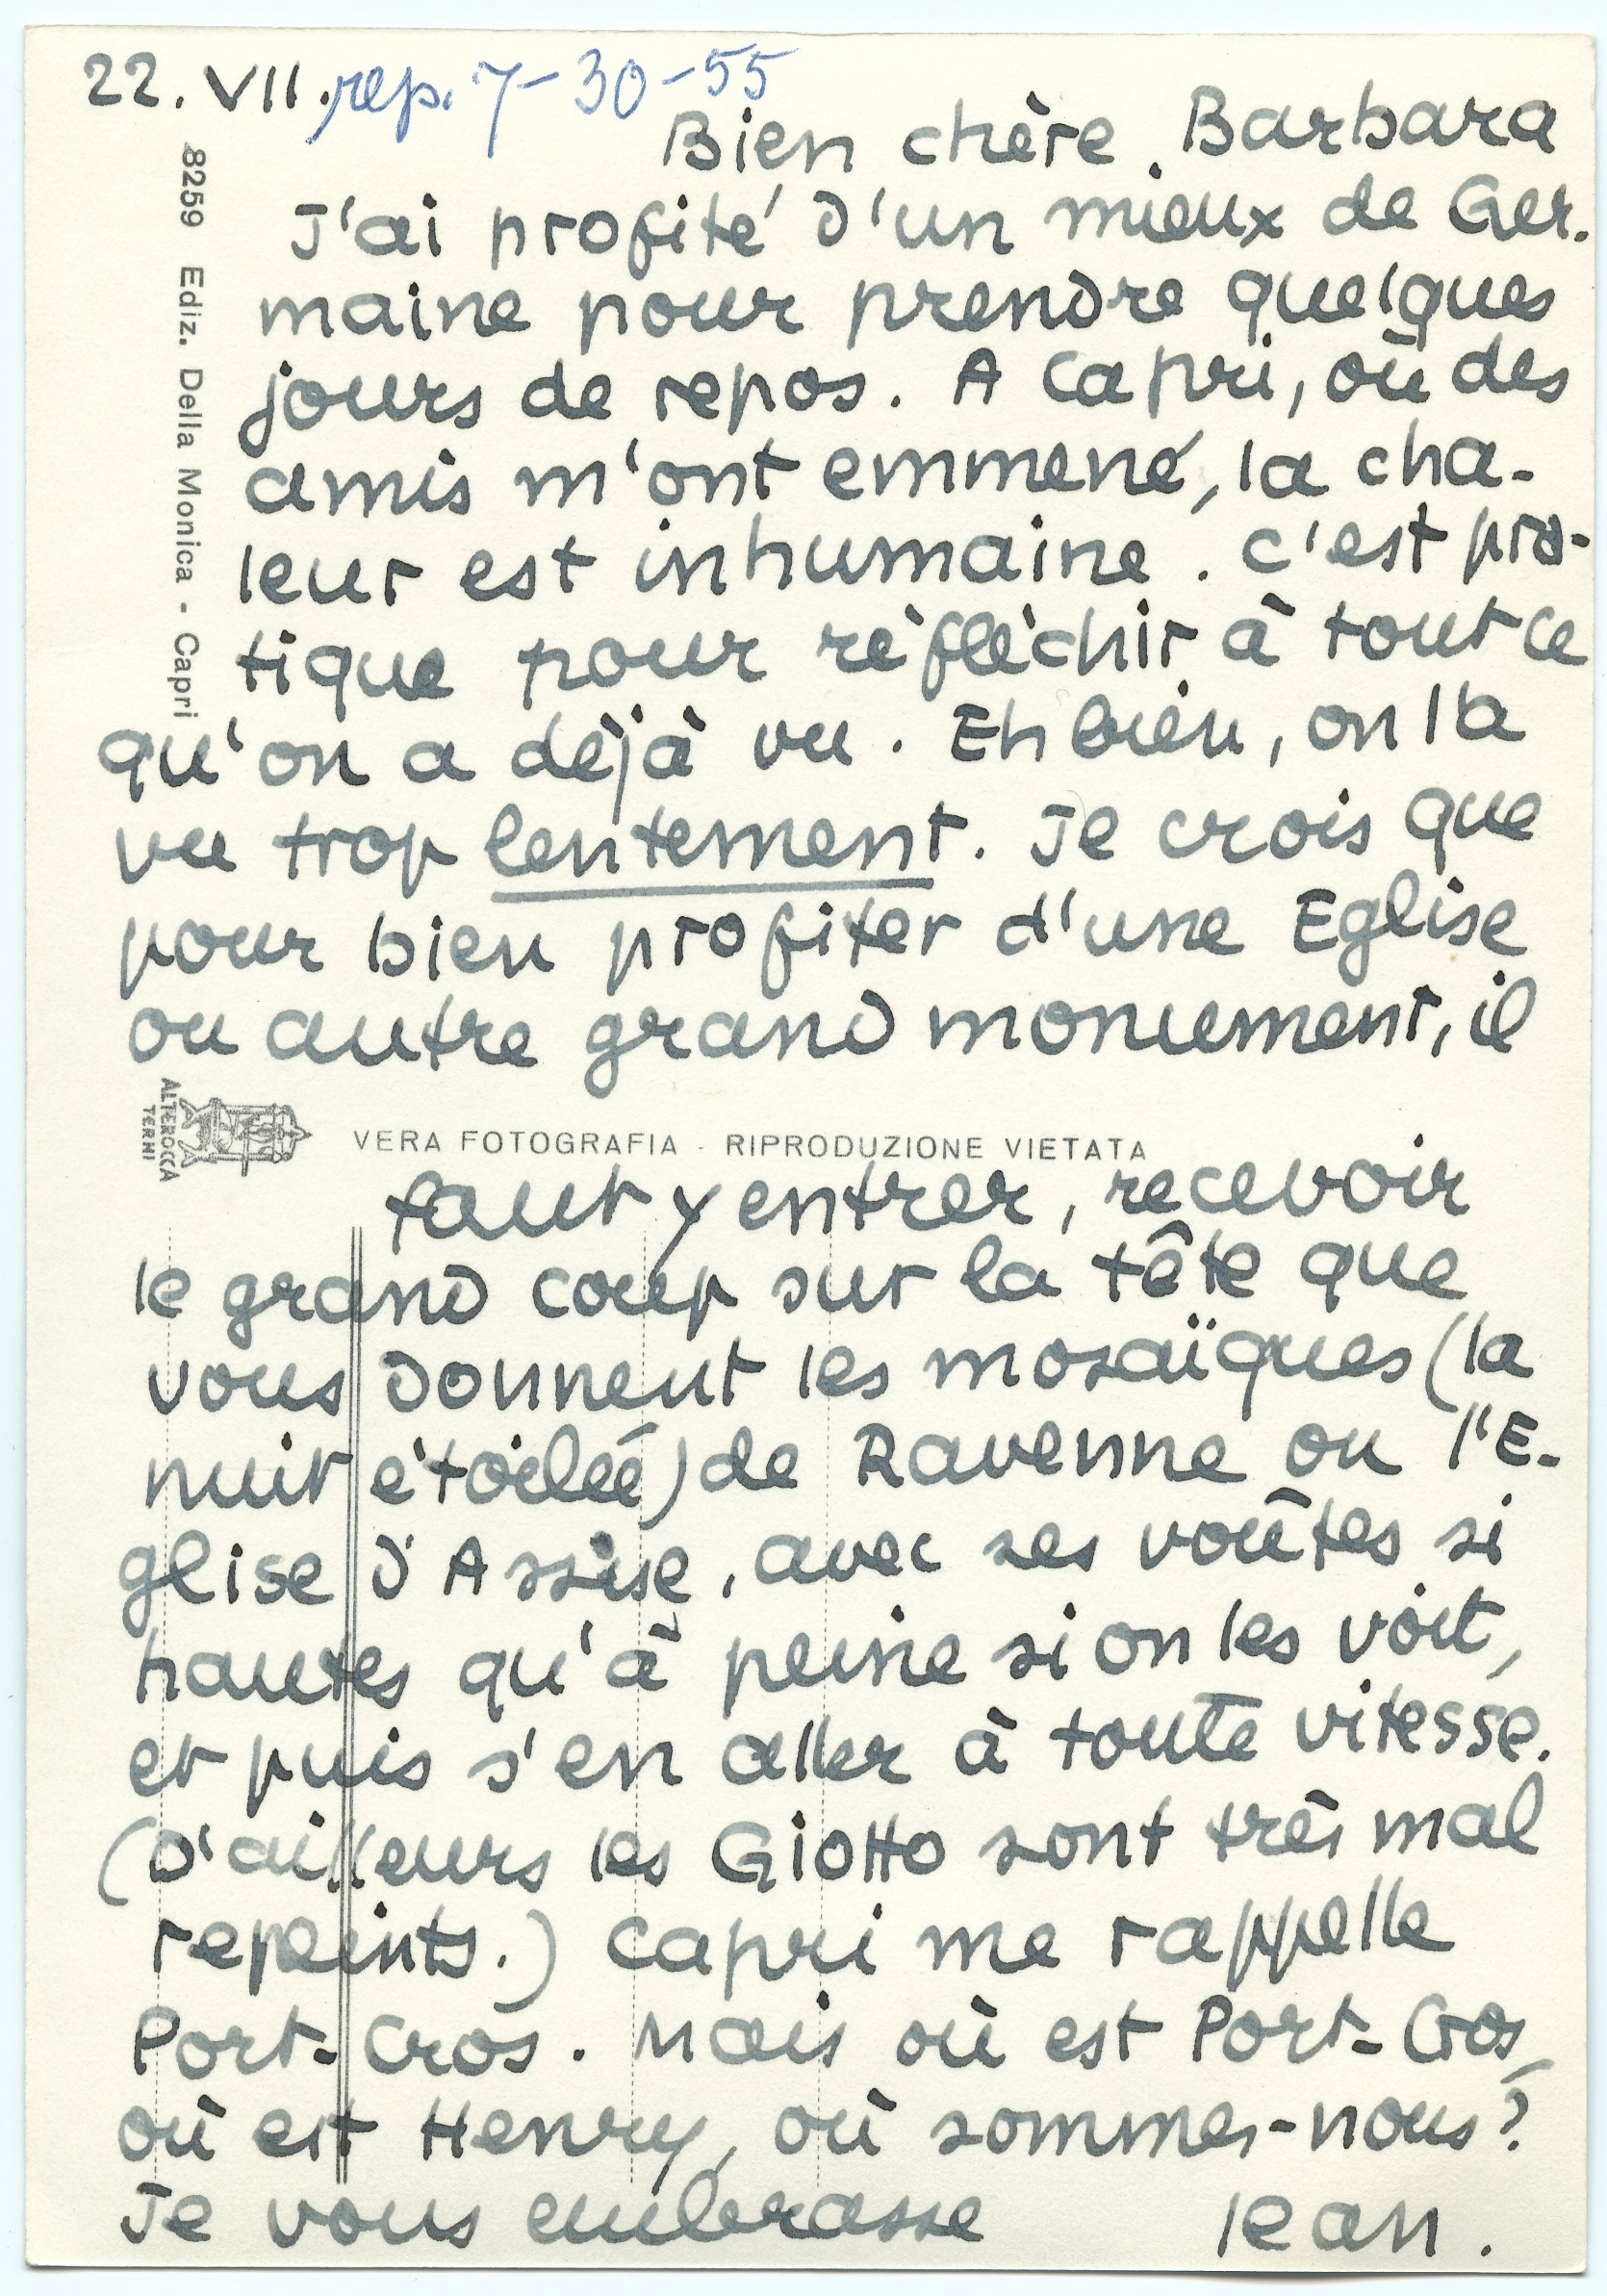 22. VII. rep. 7-30-55
Bien chère Barbara
J'ai profité d'un mieux de Ger.
maine pour prendre quelques
jours de repos. A Capri, où des
amis m'ont emmené, la cha-
leur est inhumaine. C'est pra-
tique pour réfléchir à tout ce
qu'on a déjà vu. Eh bien, on l'a
vu trop lentement. Je crois que
pour bien profiter d'une Eglise
ou autre grand monument, il
faut y entrer, recevoir
le grand coup sur la tête que
vous donnent les mosaïques (la
nuit étoilée) de Ravenne ou l'E-
glise d'Assise, avec ses voûtes si
hautes qu'à peine si on les voit,
et puis s'en aller à toute vitesse.
(D'ailleurs les Giotto sont très mal
repeints.) Capri me rappelle
Port-Cros. Mais où est Port-Cros,
où est Henry, où sommes-nous?
Je vous embrasse Jean.
8259 Ediz. Della Monica - Capri
ALTEROCCA
TERNI
VERA FOTOGRAFIA - RIPRODUZIONE VIETATA